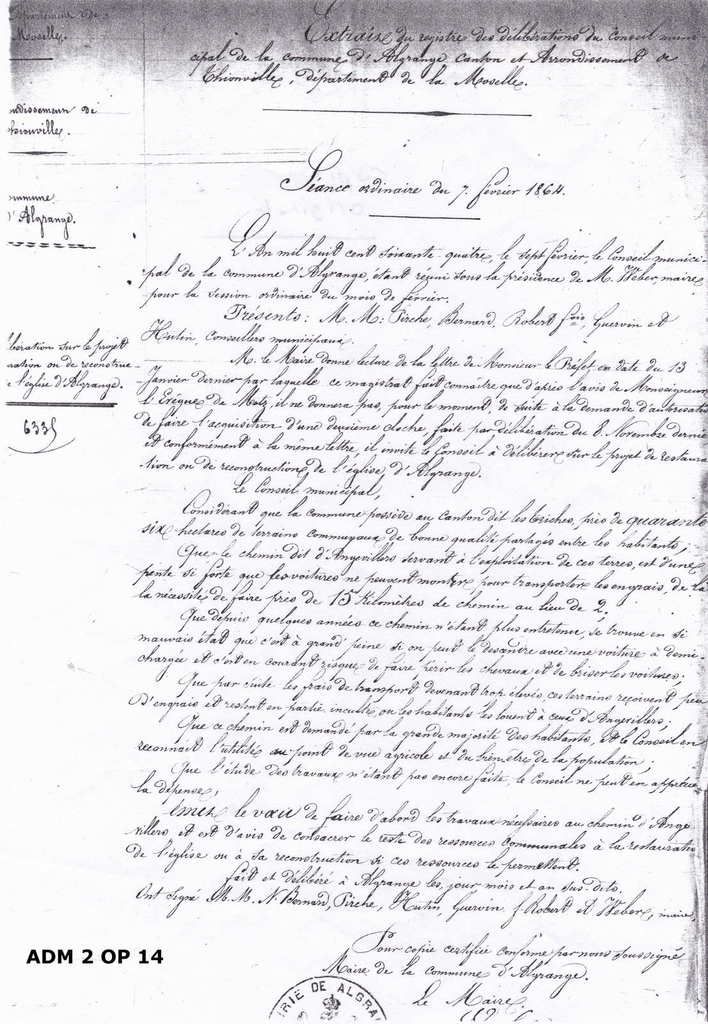 Département de
Moselle.
ondissement de
Thionville.
mmune
d'Algrange.
libération sur le projet
ration ou de reconstruc-
e l'église d'Algrange.
Extrait du registre des délibérations du Conseil muni-
cipal de la commune d'Algrange, Canton et Arrondissement de
Thionville, département de la Moselle.
Séance ordinaire du 7. février 1864.
L'An mil huit cent soixante quatre, le sept février, le Conseil munici-
pal de la commune d'Algrange, étant réuni sous la présidence de M. Weber, maire
pour la session ordinaire du mois de février.
Présents: M. M: Pirche, Bernard, Robert fois, Guervin et
Hutin, Conseillers municipaux.
M. le Maire donne lecture de la lettre de Monsieur le Préfet en date du 13
Janvier dernier par laquelle ce magistrat fait connaître que d'après l'avis de Monseigneur
l'Evêque de Metz, il ne donnera pas, pour le moment, de suite à la demande d'autorisation
de faire l'acquisition d'une deuxième cloche, faite par délibération du 8. Novembre dernier
et conformément à la même lettre, il invite le Conseil à délibérer sur le projet de restaura-
tion ou de reconstruction de l'église d'Algrange.
Le Conseil municipal,
Considérant que la commune possède au Canton dit les friches, près de quarante
six hectares de terrains communaux de bonne qualité partagés entre les habitants;
Que le chemin dit d'Angevillers servant à l'exploitation de ces terres, est d'une
pente si forte que les voitures ne peuvent monter pour transporter les engrais, de là
la nécessité de faire près de 15 Kilomètres de chemin au lieu de 2.
Que depuis quelques années ce chemin n'étant plus entretenu, se trouve en si
mauvais état que c'est à grand peine si on peut le descendre avec une voiture à demi-
chargée et c'est en courant risque de faire périr les chevaux et de briser les voitures.
Que par suite les frais de transport devenant trop élevés, ces terrains reçoivent peu
d'engrais et restent en partie incults ou les habitants les louent à ceux d'Angevillers;
Que ce chemin est demandé par la grande majorité des habitants, et le Conseil en
reconnait l'utilité au point de vue agricole et du bienêtre de la population;
Que l'étude des travaux n'étant pas encore faite, le Conseil ne peut en apprécier
la dépense;
émet le voeu de faire d'abord les travaux nécessaires au chemin d'Ange
villers et est d'avis de consacrer le reste des ressources communales à la restauration
de l'église ou à sa reconstruction si ces ressources le permettent.
fait et délibéré à Algrange les, jour mois et an sus-dits.
Ont signé M. M. N. Bernard, Pirche, Hutin, Guervin, J. Robert et Weber, maire
Pour copie certifiée conforme par nous soussigné
Maire de la commune d'Algrange.
Le Maire
ADM 2 OP 14
RIE DE ALGRA